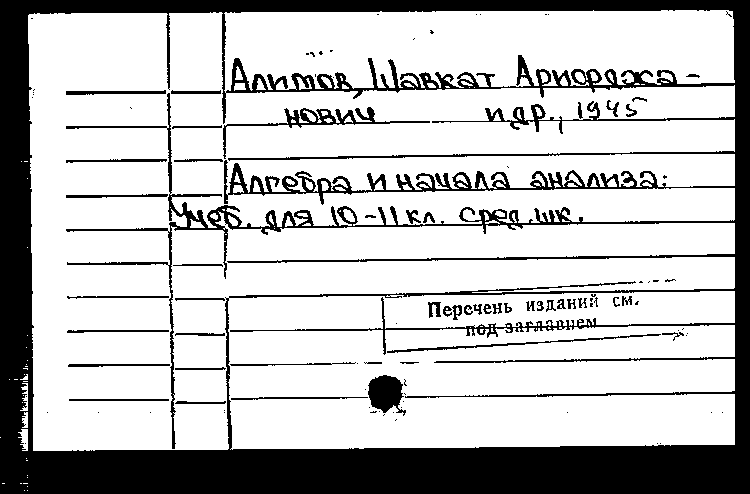 Алимов, Шавкат Ариорджа-
нович и др., 1945
Алгебра и начала анализа:
Учеб. для 10-11 кл. сред. шк.
Перечень изданий см.
под заглавием